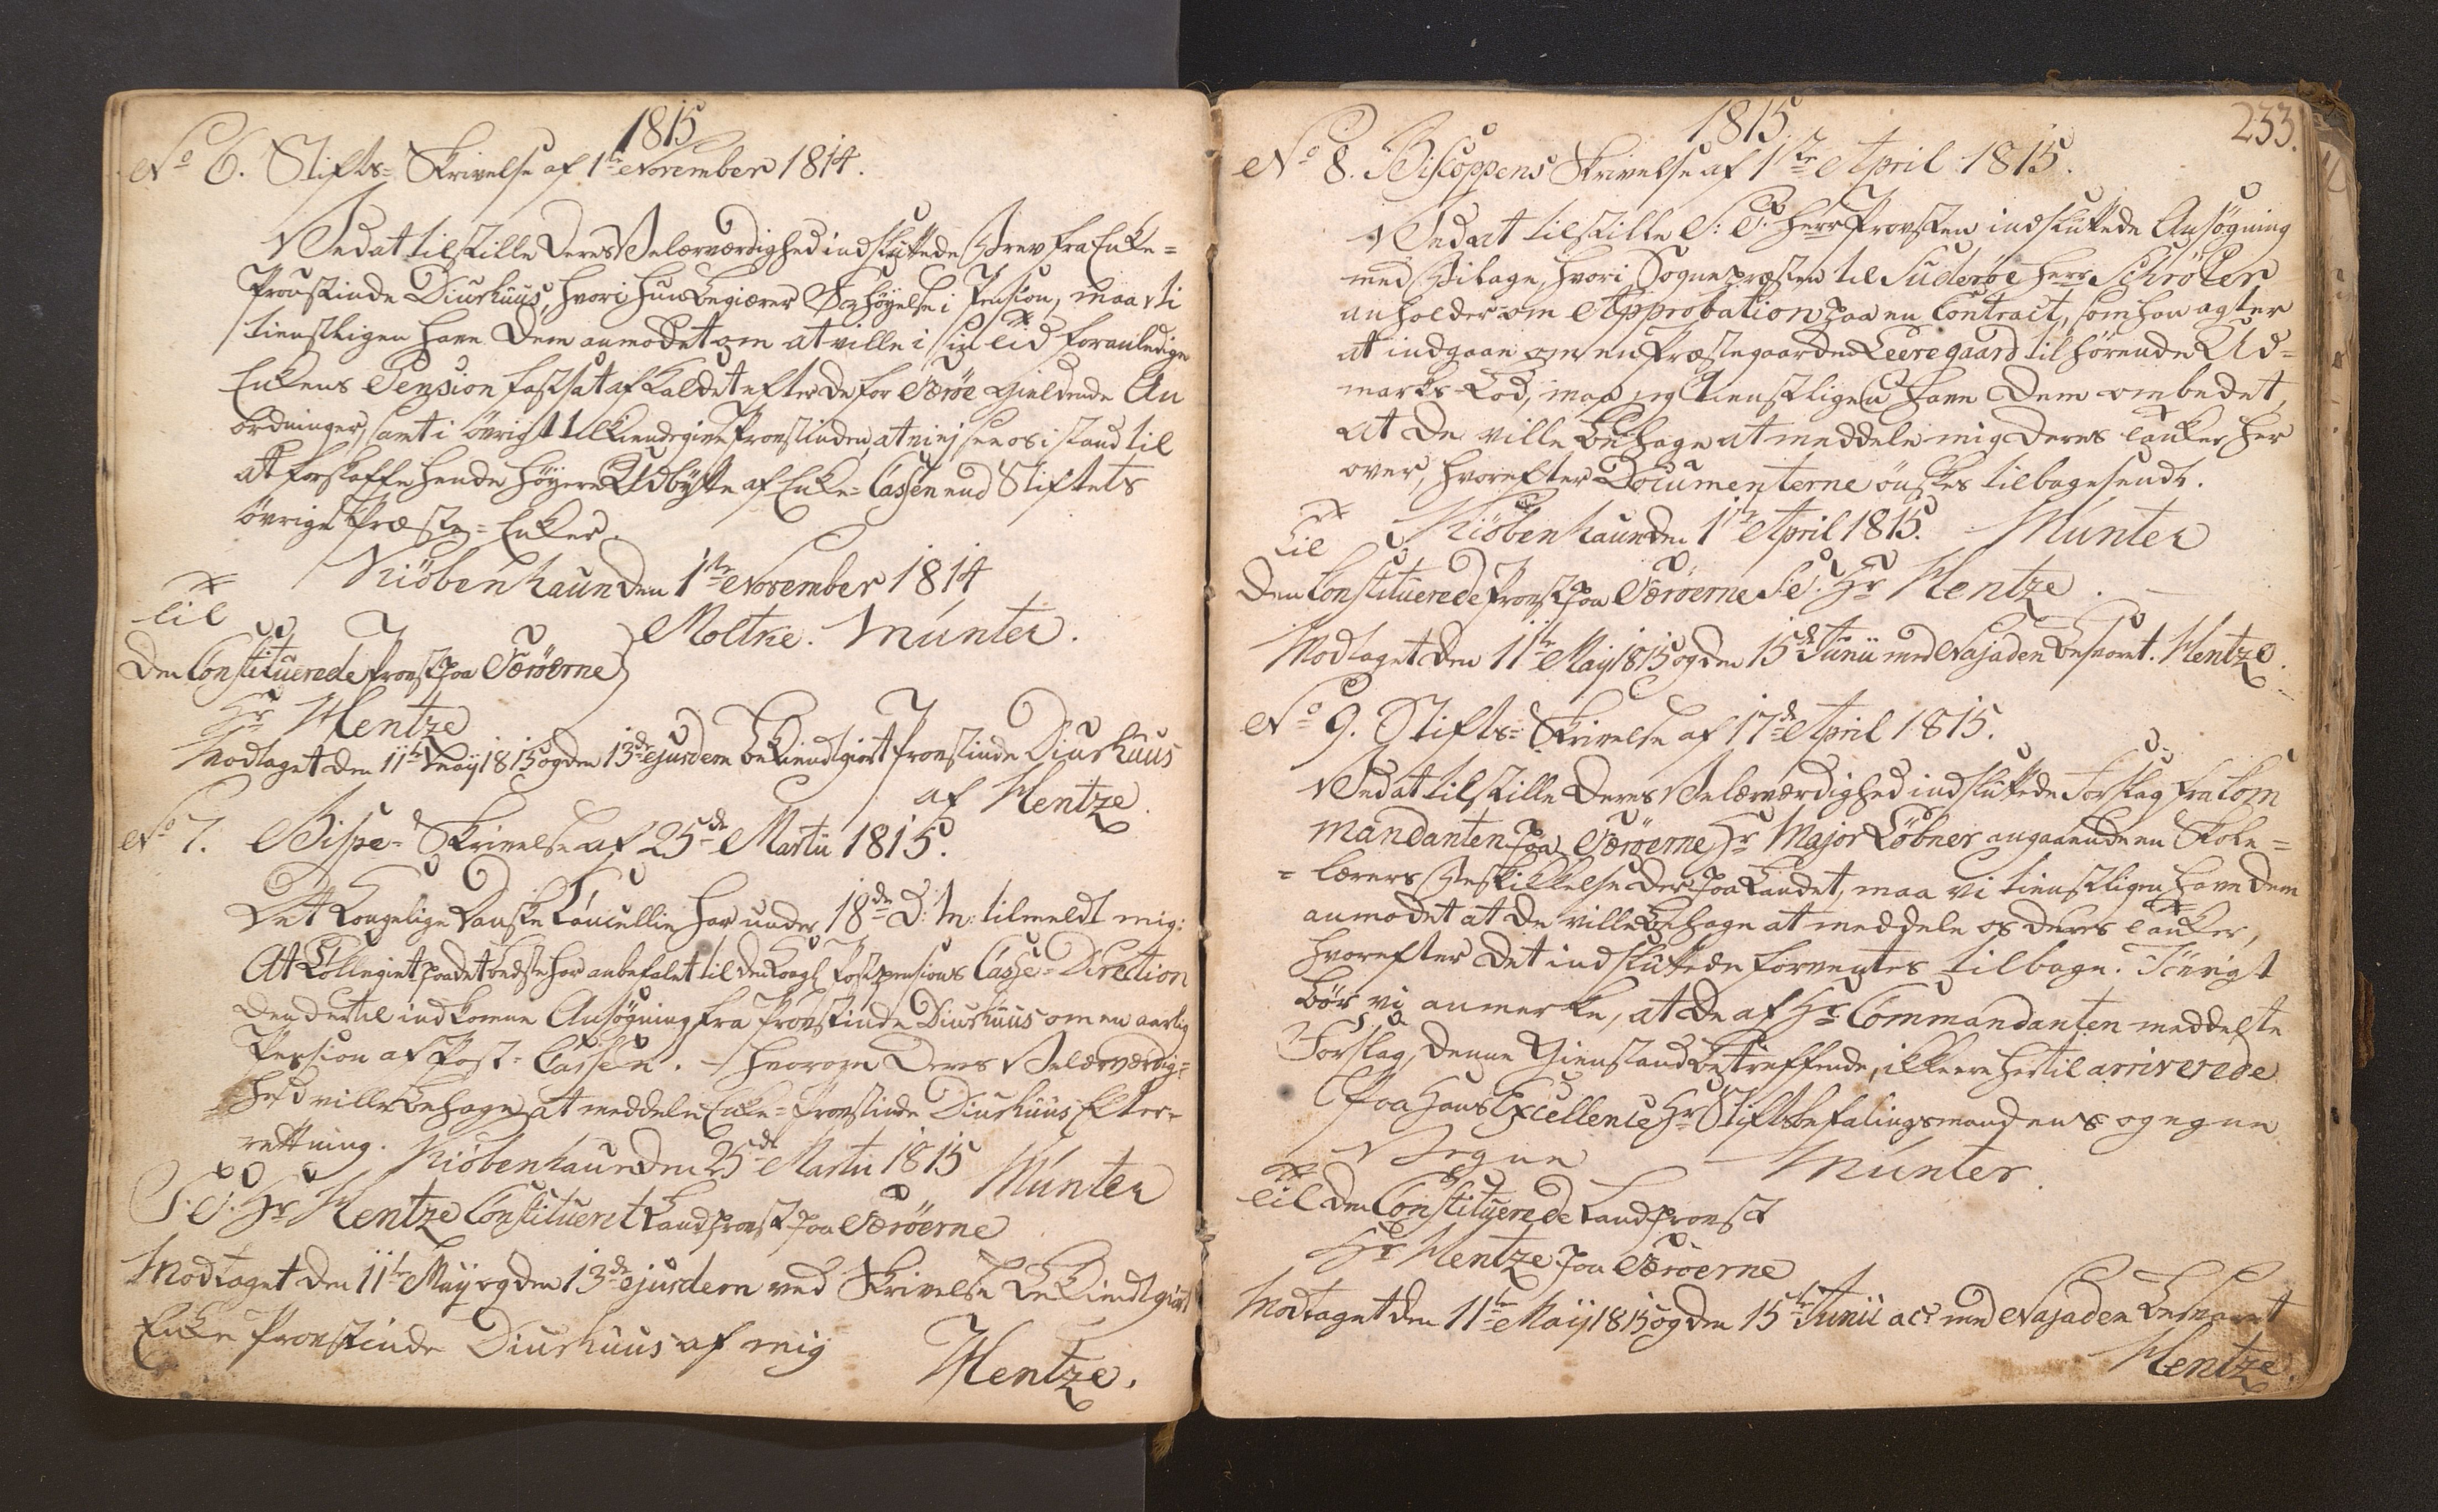 1815
No 6. Stifts- Skrivelse af 1ste November 1814.
Ved at tilstille Deres Velærværdighed indsluttede Brev fra Enke-
Provstinde Diurhuus, hvori hun begiærer Forhöyelse i Pension, maa vi
tienstligen have Dem anmodet om at ville i sin Tid foranledige
Enkens Pension fastsat af Kaldet efter de for Færøe gieldende An
ordninger, samt i övrigt tilkiendegive Provstinden, at vi ej see os i stand til
at forskaffe hende höyere Udbytte af Enke-Cassen end Stiftets
övrige Præste-Enker.
Kiöbenhaun den 1ste November 1814
Til
Moltke. Münter.
Den Constituerede Provst paa Færöerne
Hr Hentze
Modtaget den 11te May 1815 og den 13de ejusdem bekiendtgiort Provstinde Diurhuus
af Hentze.
No 7. Bispe- Skrivelse af 25de Martii 1815.
Det Kongelige Danske Cancellie har under 18de D: M: tilmeldt mig:
At Collegiet paa det bedste har anbefalet til den Kongl Postpensions Casse-Direction
den dertil indkomne Ansögning fra Provstinde Diurhuus om en aarlig
Pension af Post-Cassen. - hvorom Deres Velærværdig-
hed ville behage at meddele Enke-Provstinde Diurhuus Efter-
retning. Kiöbenhaun den 25de Martii 1815
Münter
S. T. Hr Hentze Constitueret Landprovst paa Færöerne
Modtaget den 11te May og den 13de ejusdem ved Skrivelse bekiendtgiort
Enke Provstinde Diurhuus af mig
Hentze.
1815.
233.
No 8. Biscoppens Skrivelse af 1ste April 1815.
Ved at tilstille S: T. Herr Provsten indsluttede Ansögning
med Bilage, hvori Sognepræsten til Suderöe Herr Schröter
anholder om Approbation paa en Contract, som han agter
at indgaae om en Præstegaarden Leeregaard tilhörende Ud-
marks-Lod, maa jeg tienstligen have Dem ombedet,
at De ville behage at meddele mig Deres Tanker her
over, hvorefter Documenterne önskes tilbagesendt.
Kiöbenhaun den 1ste April 1815. Münter
Til
Den Constituerede Provst paa Færöerne S. T. Hr Hentze.
Modtaget den 11te May 1815 og den 15de Junii med Najaden besvaret. Hentze.
No 9. Stifts- Skrivelse af 17de April 1815.
Ved at tilstille Deres Velærværdighed indsluttede Forslag fra Com
mandanten paa Færöerne Hr Major Löbner angaaende en Skole-
- lærers Beskikkelse der paa Landet, maa vi tienstligen have Dem
anmodet at De ville behage at meddele os Deres Tanker,
hvorefter det indsluttede forventes tilbage. Iövrigt
bör vi anmerke, at de af Hr Commandanten meddelte
Forslag, denne Gienstand betreffende, ikke ere hertil arriverede
Paa Hans Excellence Hr Stiftsbefalingsmandens og egne
Vegne
Münter.
Til den Constituerede Landprovst
Hr Hentze paa Færöerne
Modtaget den 11te Maij 1815 og den 15te Junii a c: med Najaden besvaret
Hentze.